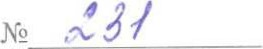 № 231